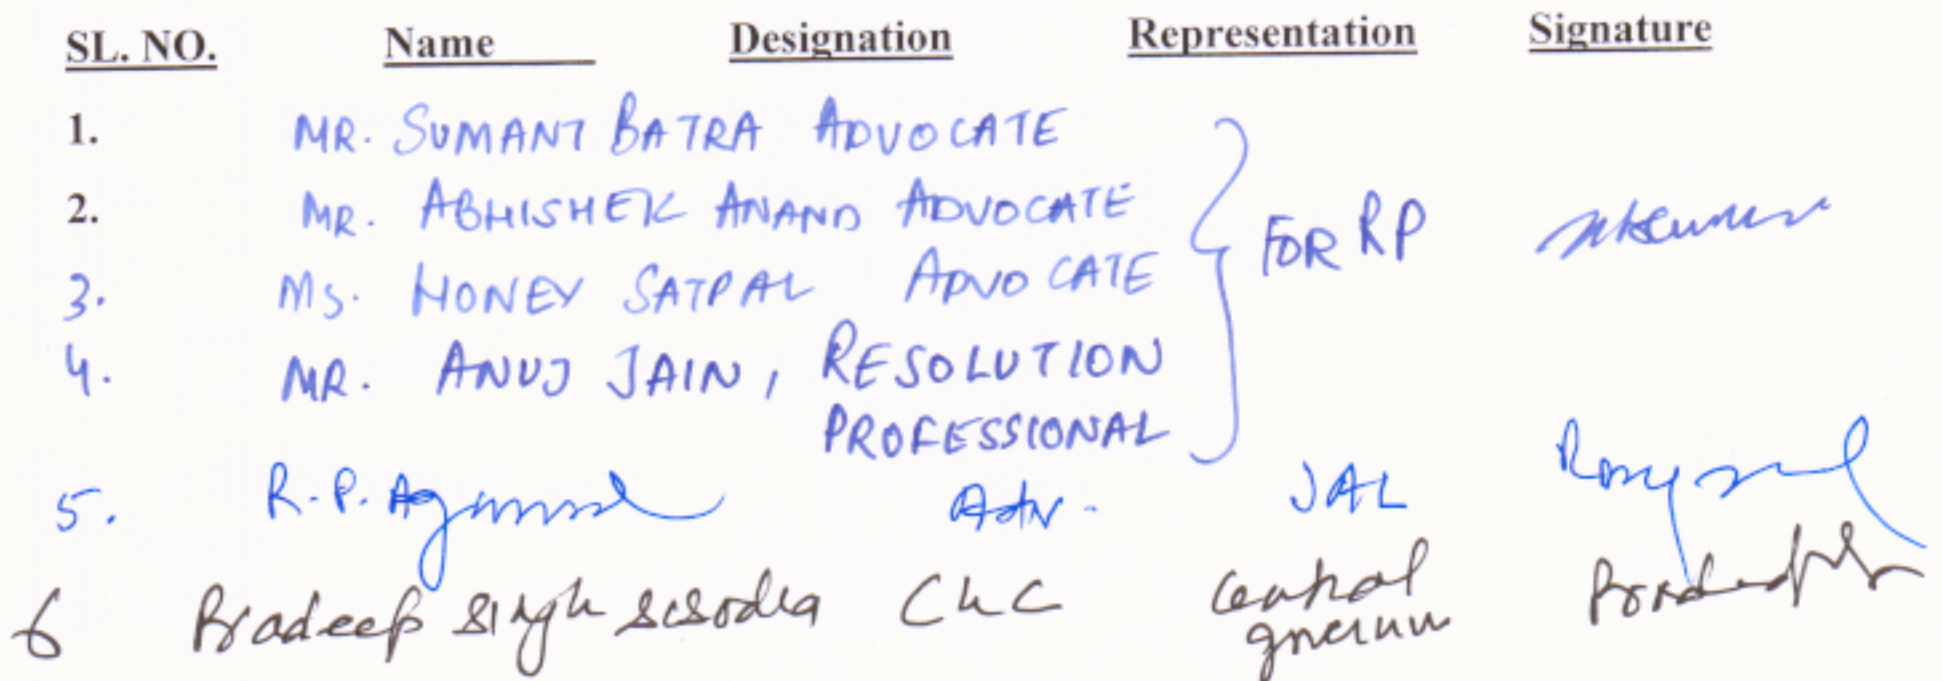 SL. NO. Name Designation Representation Signature
1. MR. SUMANT BATRA ADVOCATE
2. MR. ABHISHEK ANAND ADVOCATE FOR RP
3. MS. HONEY SATPAL ADVOCATE
4. MR. ANUJ JAIN, RESOLUTION
PROFESSIONAL
5. R.P. Agarwal Adv. JAL
6 Pradeep singh sisodia CGC Central